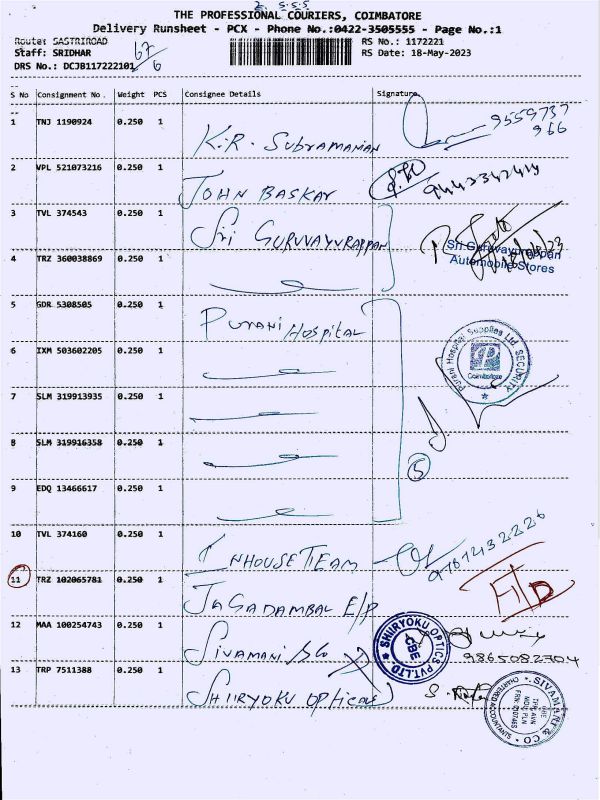 2. 5.5.5
THE PROFESSIONAL COURIERS, COIMBATORE
Delivery Runsheet - PCX - Phone No.:0422-3505555 - Page No.:1
Route: SASTRIROAD
RS No.: 1172221
Staff: SRIDHAR
RS Date: 18-May-2023
DRS No.: DCJB117222101
S No Consignment No. Weight PCS Consignee Details Signature
1 TNJ 1190924 0.250 1 K.R. Subramanian 9559737
966
2 VPL 521073216 0.250 1 JOHN BASKAR 9443342414
3 TVL 374543 0.250 1 Sri GURUVAYURAPPAN
Sri Guruvayurappan
Automobile Stores
4 TRZ 360038869 0.250 1
5 GDR 5308505 0.250 1 PURANI HOSPITAL
Purani Hospital Supplies Ltd. SECURITY
Coimbatore
6 IXM 503602205 0.250 1
7 SLM 319913935 0.250 1
8 SLM 319916358 0.250 1
5
9 EDQ 13466617 0.250 1
10 TVL 374160 0.250 1 INHOUSE TEAM 9787432226
11 TRZ 102065781 0.250 1 JAGADAMBAL E/P
12 MAA 100254743 0.250 1 SIVAMANI &Co 9865082704
SHIIRYOKU OPTICS PVT.LTD.
CBE
13 TRP 7511388 0.250 1 SHIIRYOKU OPTICALS
SIVAMANI & CO
CHARTERED ACCOUNTANTS